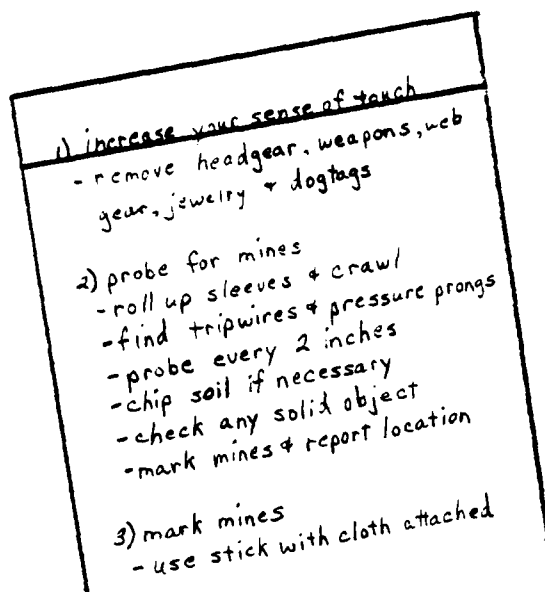 1) increase your sense of touch
- remove headgear, weapons, web
gear, jewelry & dogtags
2) probe for mines
- roll up sleeves & crawl
- find tripwires & pressure prongs
- probe every 2 inches
- chip soil if necessary
- check any solid object
- mark mines & report location
3) mark mines
- use stick with cloth attached